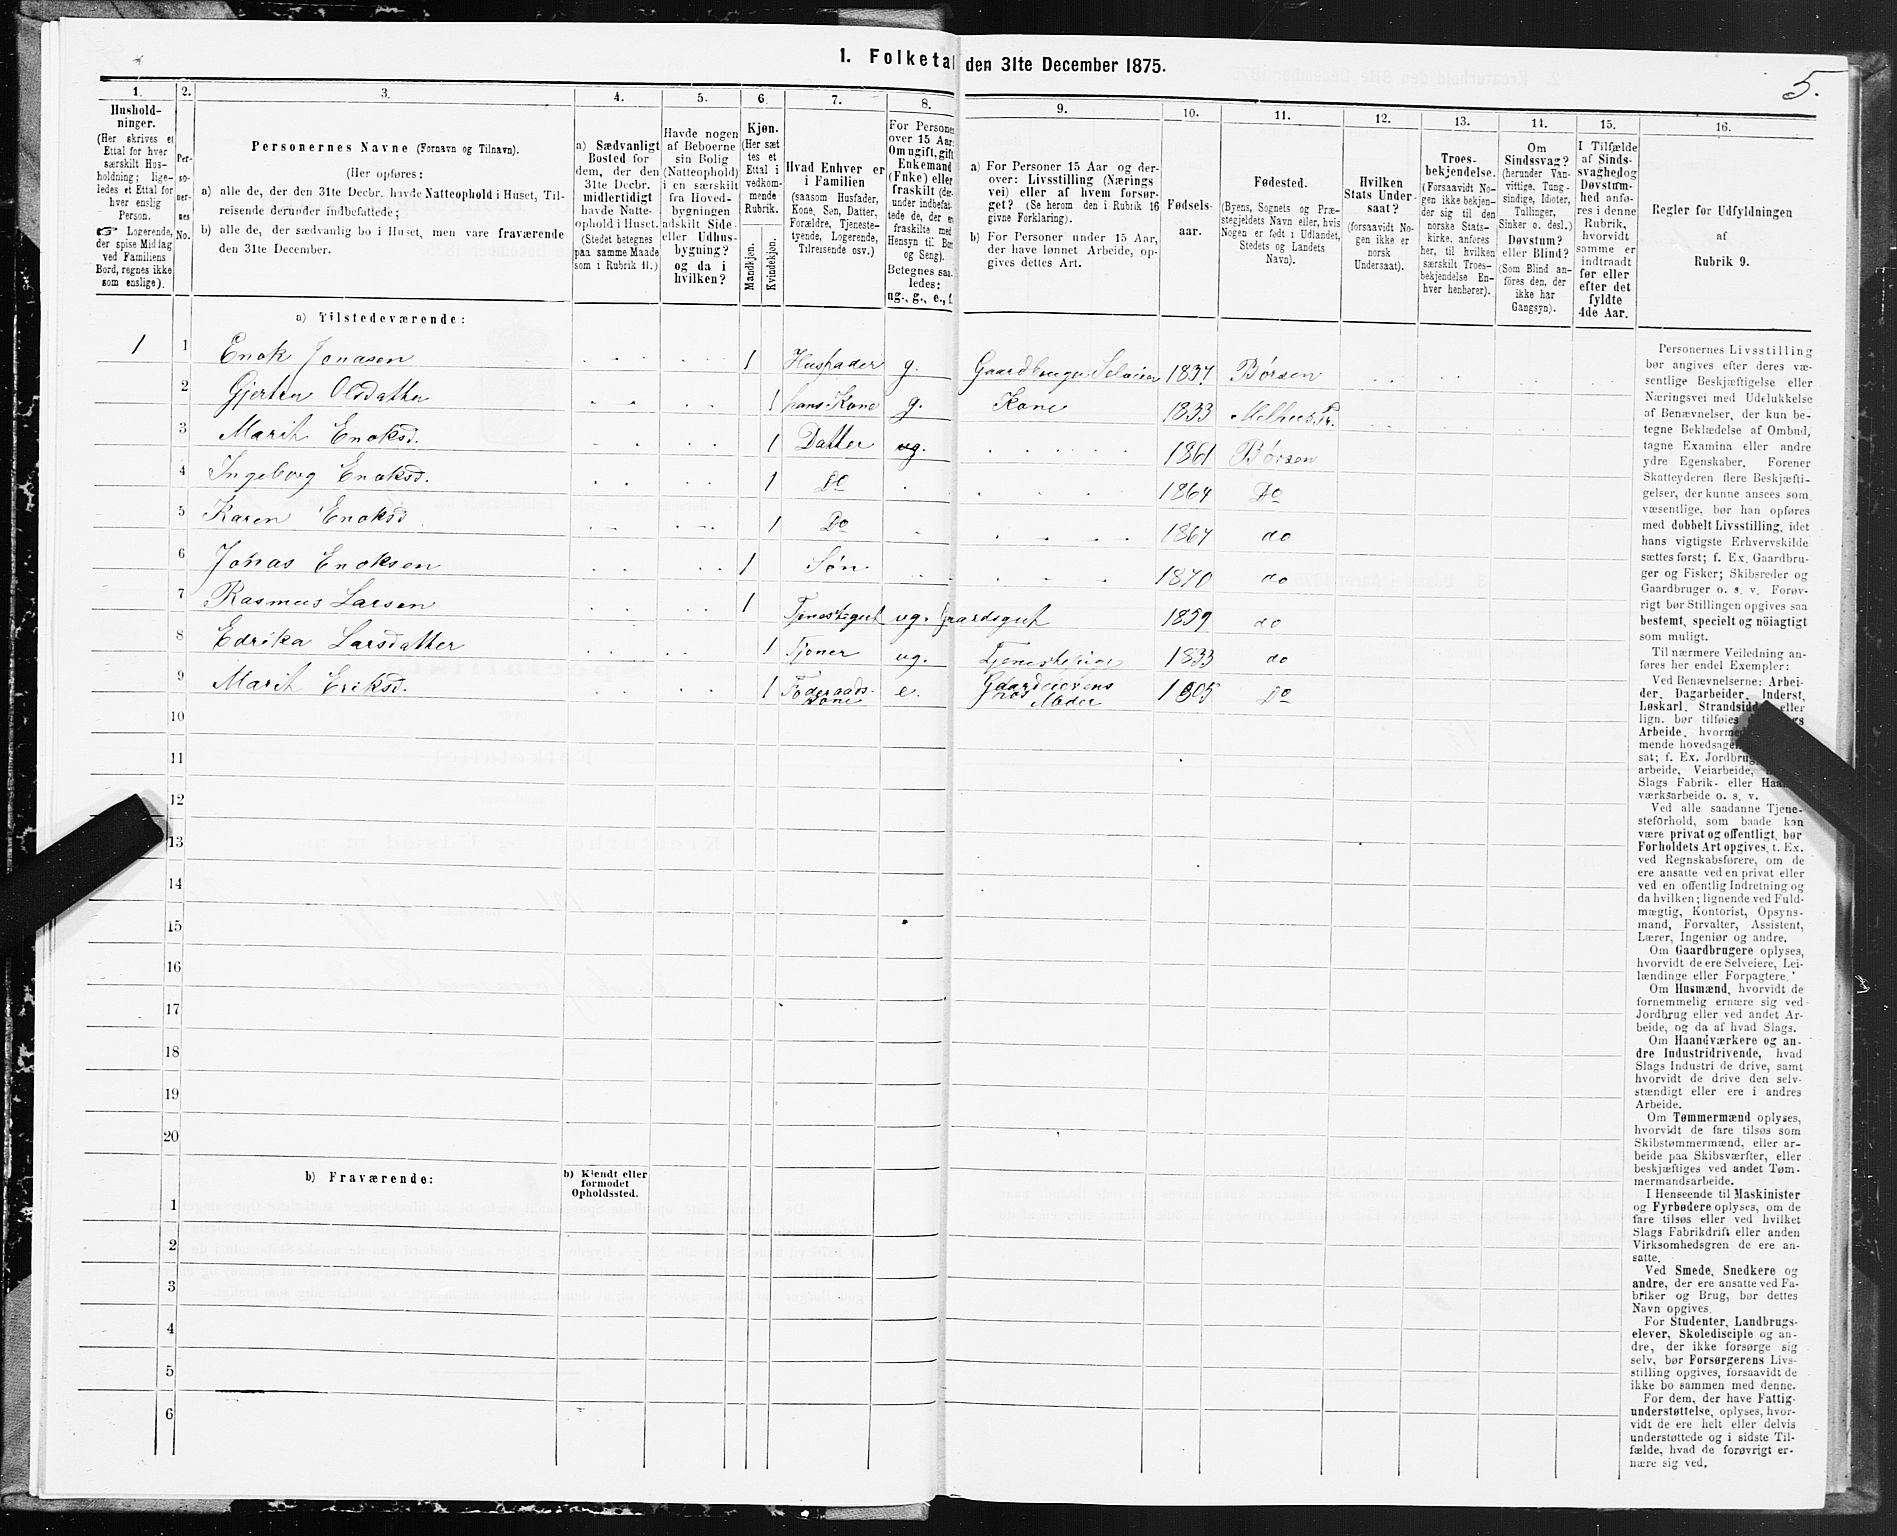 1. Folketal den 31te December 1875.
5.
1. 2. 3. 4. 5. 6. 7. 8. 9. 10. 11. 12. 13. 14. 15. 16.
Hushold-
ninger.
(Her skrives et
Ettal for hver
særskilt Hus-
holdning; lige-
ledes et Ettal for
hver enslig
Person.
☞ Logerende,
der spise Middag
ved Familiens
Bord, regnes ikke
som enslige).
Per-
so-
ner-
nes
No.
Personernes Navne (Fornavn og Tilnavn).
(Her opføres:
a) alle de, der den 31te Decbr. havde Natteophold i Huset, Til-
reisende derunder indbefattede;
b) alle de, der sædvanlig bo i Huset, men vare fraværende
den 31te December.
a) Sædvanligt
Bosted for
dem, der den
31te Decbr.
midlertidigt
havde Natte-
ophold i Huset.
(Stedet betegnes
paa samme Maade
som i Rubrik 11.)
Havde nogen
af Beboerne
sin Bolig
(Natteophold)
i en særskilt
fra Hoved-
bygningen
adskilt Side-
eller Udhus-
bygning?
og da i
hvilken?
Kjøn.
(Her sæt
tes et
Ettal i
vedkom-
mende
Rubrik.
Mandkjøn.
Kvindekjøn.
Hvad Enhver er
i Familien
(saasom Husfader,
Kone, Søn, Datter,
Forældre, Tjeneste-
tyende, Logerende,
Tilreisende osv.)
For Personer
over 15 Aar:
Om ugift, gift
Enkemand
(Enke) eller
fraskilt (der-
under indbefat-
tede de, der er
fraskilte med
Hensyn til Bord
og Seng).
Betegnes saa-
ledes:
ug., g., e., f.
a) For Personer 15 Aar og der-
over: Livsstilling (Nærings
vei) eller af hvem forsør-
get? (Se herom den i Rubrik 16
givne Forklaring).
b) For Personer under 15 Aar,
der have lønnet Arbeide, op-
gives dettes Art.
Fødsels-
aar.
Fødested.
(Byens, Sognets og Præ-
stegjeldets Navn eller, hvis
Nogen er født i Udlandet,
Stedets og Landets
Navn).
Hvilken
Stats Under-
saat?
(forsaavidt No-
gen ikke er
norsk
Undersaat).
Troes-
bekjendelse.
(Forsaavidt No-
gen ikke bekjen-
der sig til den
norske Stats-
kirke, anføres
her, til hvilken
særskilt Troes-
bekjendelse En-
hver henhører).
Om
Sindssvag?
(herunder Van-
vittige, Tung-
sindige, Idioter,
Tullinger,
Sinker o. desl.)
Døvstum?
eller Blind?
(Som Blind an-
føres den, der
ikke har
Gangsyn).
I Tilfælde
af Sinds-
svaghed og
Døvstum-
hed anfø-
res i denne
Rubrik,
hvorvidt
samme er
indtraadt
før eller
efter det
fyldte
4de Aar.
Regler for Udfyldningen
af
Rubrik 9.
a) Tilstedeværende:
1 1 Enok Jonasen 1 Husfader g. Gaardbruger Selveier 1837 Børsen
2 Gjertru Olsdatter 1 hans Kone g. Kone 1833 Melhus Pr.
3 Marit Enoksd. 1 Datter ug. 1861 Børsen
4 Ingeborg Enoksd. 1 Do 1864 Do
5 Karen Enoksd 1 Do 1867 do
6 Jonas Enoksen 1 Søn 1870 do
7 Rasmus Larsen 1 Tjenestegut ug. Gaardsgut 1859 do
8 Edrika Larsdatter 1 Tjener ug. Tjenestepige 1833 do
9 Marit Eriksd. 1 Føderaads- e. Gaardeierens 1805 Do
Kone Moder
10
11
12
13
14
15
16
17
18
19
20
b) Fraværende:
b) Kjendt eller
formodet
Opholdssted.
1
2
3
4
5
6
Personernes Livsstilling
bør angives efter deres væ-
sentlige Beskjæftigelse eller
Næringsvei med Udelukkelse
af Benævnelser, der kun be-
tegne Beklædelse af Ombud,
tagne Examina eller andre
ydre Egenskaber. Forener
Skatteyderen flere Beskjæfti-
gelser, der kunne ansees som
væsentlige, bør han opføres
med dobbelt Livsstilling, idet
hans vigtigste Erhvervskilde
sættes først; f. Ex. Gaardbru-
ger og Fisker; Skibsreder og
Gaardbruger o. s. v. Forøv-
rigt bør Stillingen opgives saa
bestemt, specielt og nöiagtigt
som muligt.
Til nærmere Veiledning an-
føres her endel Exempler:
Ved Benævnelserne: Arbei-
der, Dagarbeider, Inderst,
Løskarl, Strandsidder eller
lign. bør tilføies
Arbeide, hvormed
mende hovedsagelig
sat; f. Ex. Jordbrug,
arbeide, Veiarbeide,
Slags Fabrik- eller Haand-
værksarbeide o. s. v.
Ved alle saadanne Tjene-
steforhold, som baade kan
være privat og offentligt, bør
Forholdets Art opgives, t. Ex.
ved Regnskabsførere, om de
ere ansatte ved en privat eller
ved en offentlig Indretning og
da hvilken; lignende ved Fuld-
mægtig, Kontorist, Opsyns-
mand, Forvalter, Assistent,
Lærer, Ingeniør og andre.
Om Gaardbrugere oplyses,
hvorvidt de ere Selveiere, Lei-
lændinge eller Forpagtere.
Om Husmænd, hvorvidt de
fornemmelig ernære sig ved
Jordbrug eller ved andet Ar-
beide, og da af hvad Slags.
Om Haandværkere og an-
dre Industridrivende, hvad
Slags Industri de drive, samt
hvorvidt de drive den selv-
stændigt eller ere i andres
Arbeide.
Om Tømmermænd oplyses,
hvorvidt de fare tilsøs som
Skibstømmermænd, eller ar-
beide paa Skibsværfter, eller
beskjæftiges ved andet Tøm-
mermandsarbeide.
I Henseende til Maskinister
og Fyrbødere oplyses, om de
fare tilsøs eller ved hvilket
Slags Fabrikdrift eller anden
Virksomhedsgren de ere an-
satte.
Ved Smede, Snedkere og
andre, der ere ansatte ved Fa-
briker og Brug, bør dettes
Navn opgives.
For Studenter, Landbrugs-
elever, Skoledisciple og an-
dre, der ikke forsørge sig
selv, bør Forsørgerens Livs-
stilling opgives, forsaavidt de
ikke bo sammen med denne.
For dem, der have Fattig-
understøttelse, oplyses, hvor-
vidt de ere helt eller delvis
understøttede og i sidste Til-
fælde, hvad de forøvrigt er-
nære sig ved.